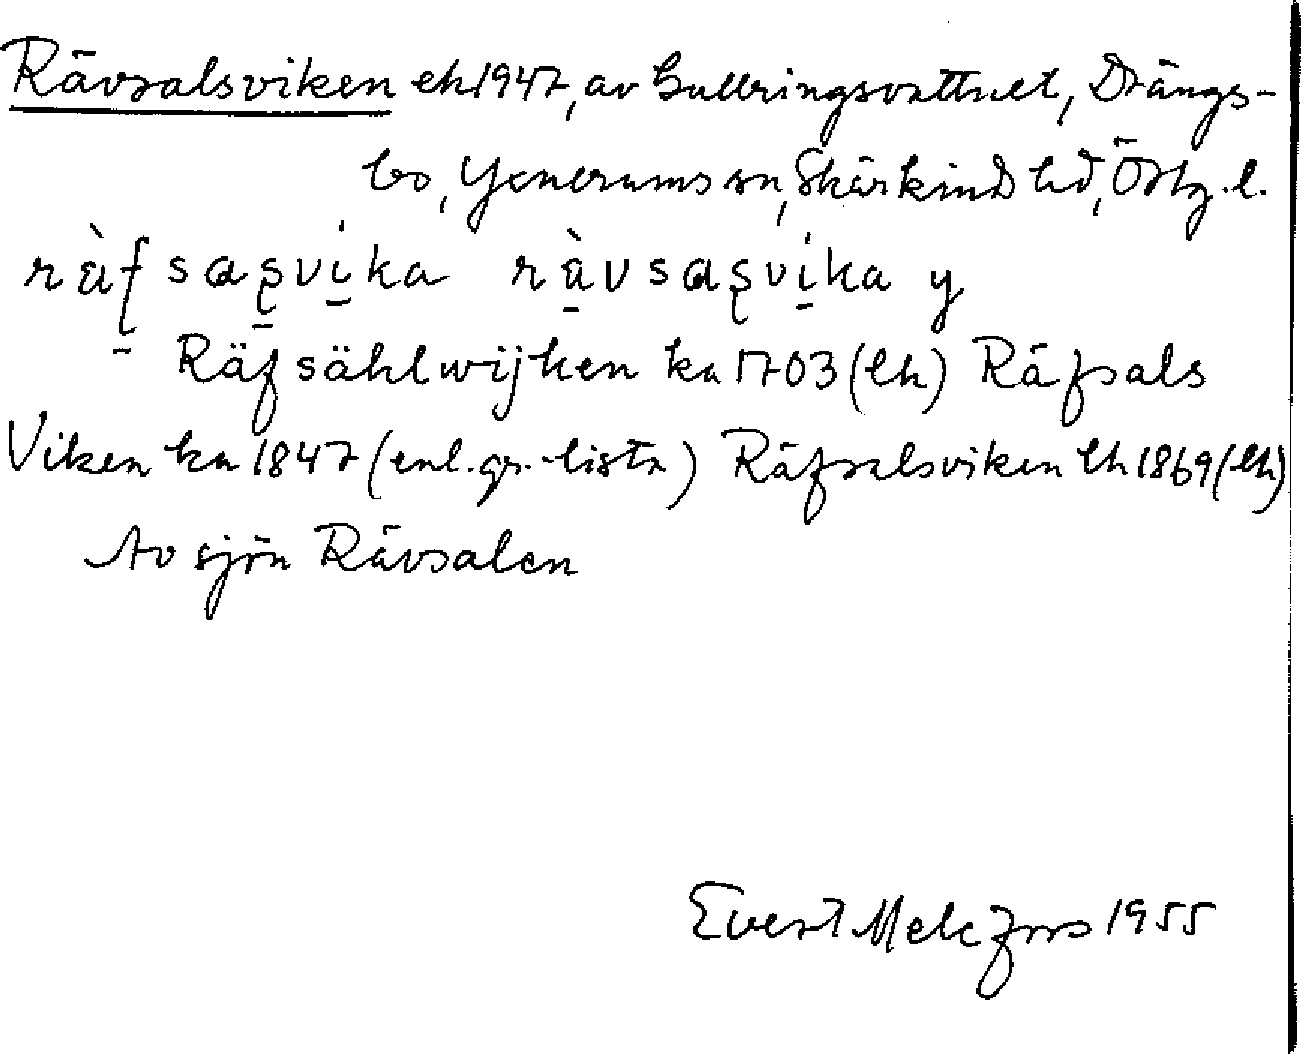 Rävsalsviken ek 1947, av Gullringsvattnet, Drängs-
bo, Yxnerums sn, Skärkinds hd, Östg. l.
ràfsaʂvíka ràvsaʂvíka y
Räfsählwijken ka 1703 (lk) Räfsals
Viken ka 1847 (enl. gr.-lista) Räfsalsviken lk 1869 (lk)
Av sjön Rävsalen
Evert Melefors 1955